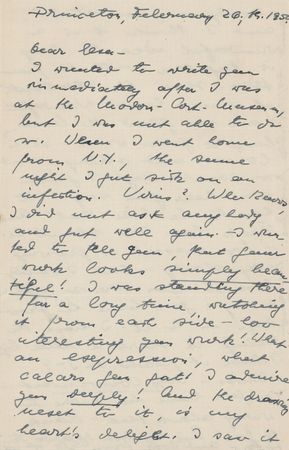 Princeton, February 26, 19. 195
Dear
I wanted to write you
immediately after I was
at the Modern-Art-Museum,
but I was not able to do
so. When I went home
from N.Y., the same
night I got sick on an
infection. Virus? Who knows,
I did not ask anybody
and got well again. I wan-
ted to tell you, that your
work looks simply beau-
tiful! I was standing there
for a long time watching
it from each side - how
interesting your work! What
an expression, what
colors you got! I admire
you deeply! And the drawing
next to it, is my
heart's delight. I saw it